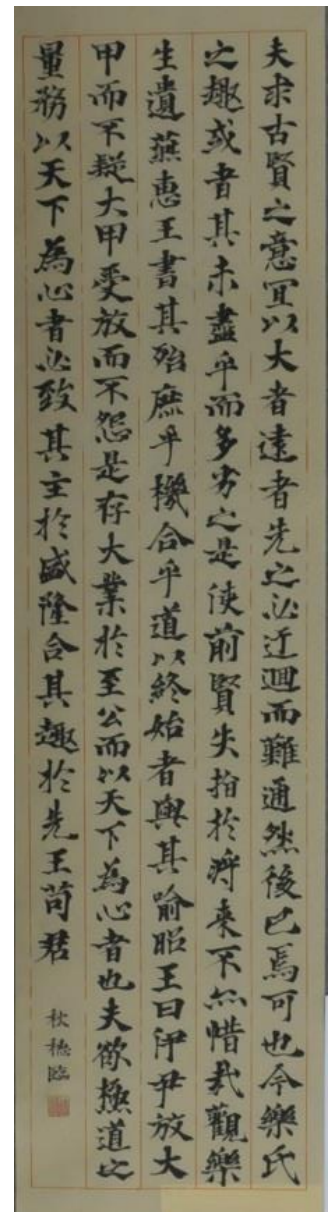 夫求古賢之意宜以大者遠者先之必迂迴而難通然後已焉可也今樂氏
之趣或者其未盡乎而多劣之是使前賢失指於將来不亦惜哉觀樂
生遺燕惠王書其殆庶乎機合乎道以終始者與其喻昭王曰伊尹放大
甲而不疑大甲受放而不怨是存大業於至公而以天下為心者也夫欲極道之
量務以天下為心者必致其主於盛隆合其趣於先王苟君
秋穂臨